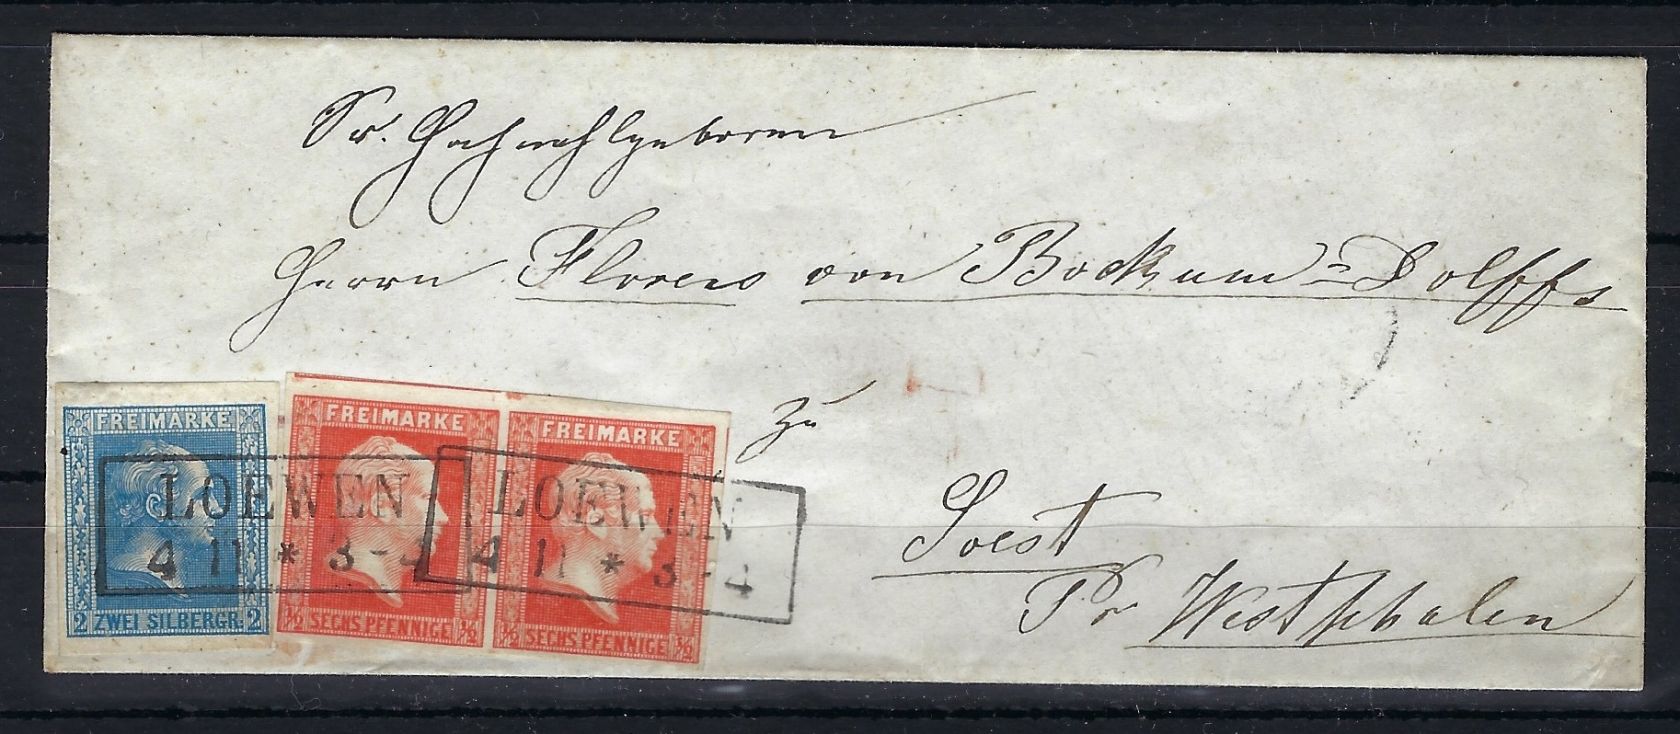 Sr. Hochwohlgeboren
Herrn Florens von Bockum=Dolffs
zu
Soest
Pr Westphalen
FREIMARKE
2 ZWEI SILBERGR. 2
FREIMARKE
1/2 SECHS PFENNIGE 1/2
FREIMARKE
1/2 SECHS PFENNIGE 1/2
LOEWEN
4 11 * 3-4
LOEWEN
4 11 * 3-4